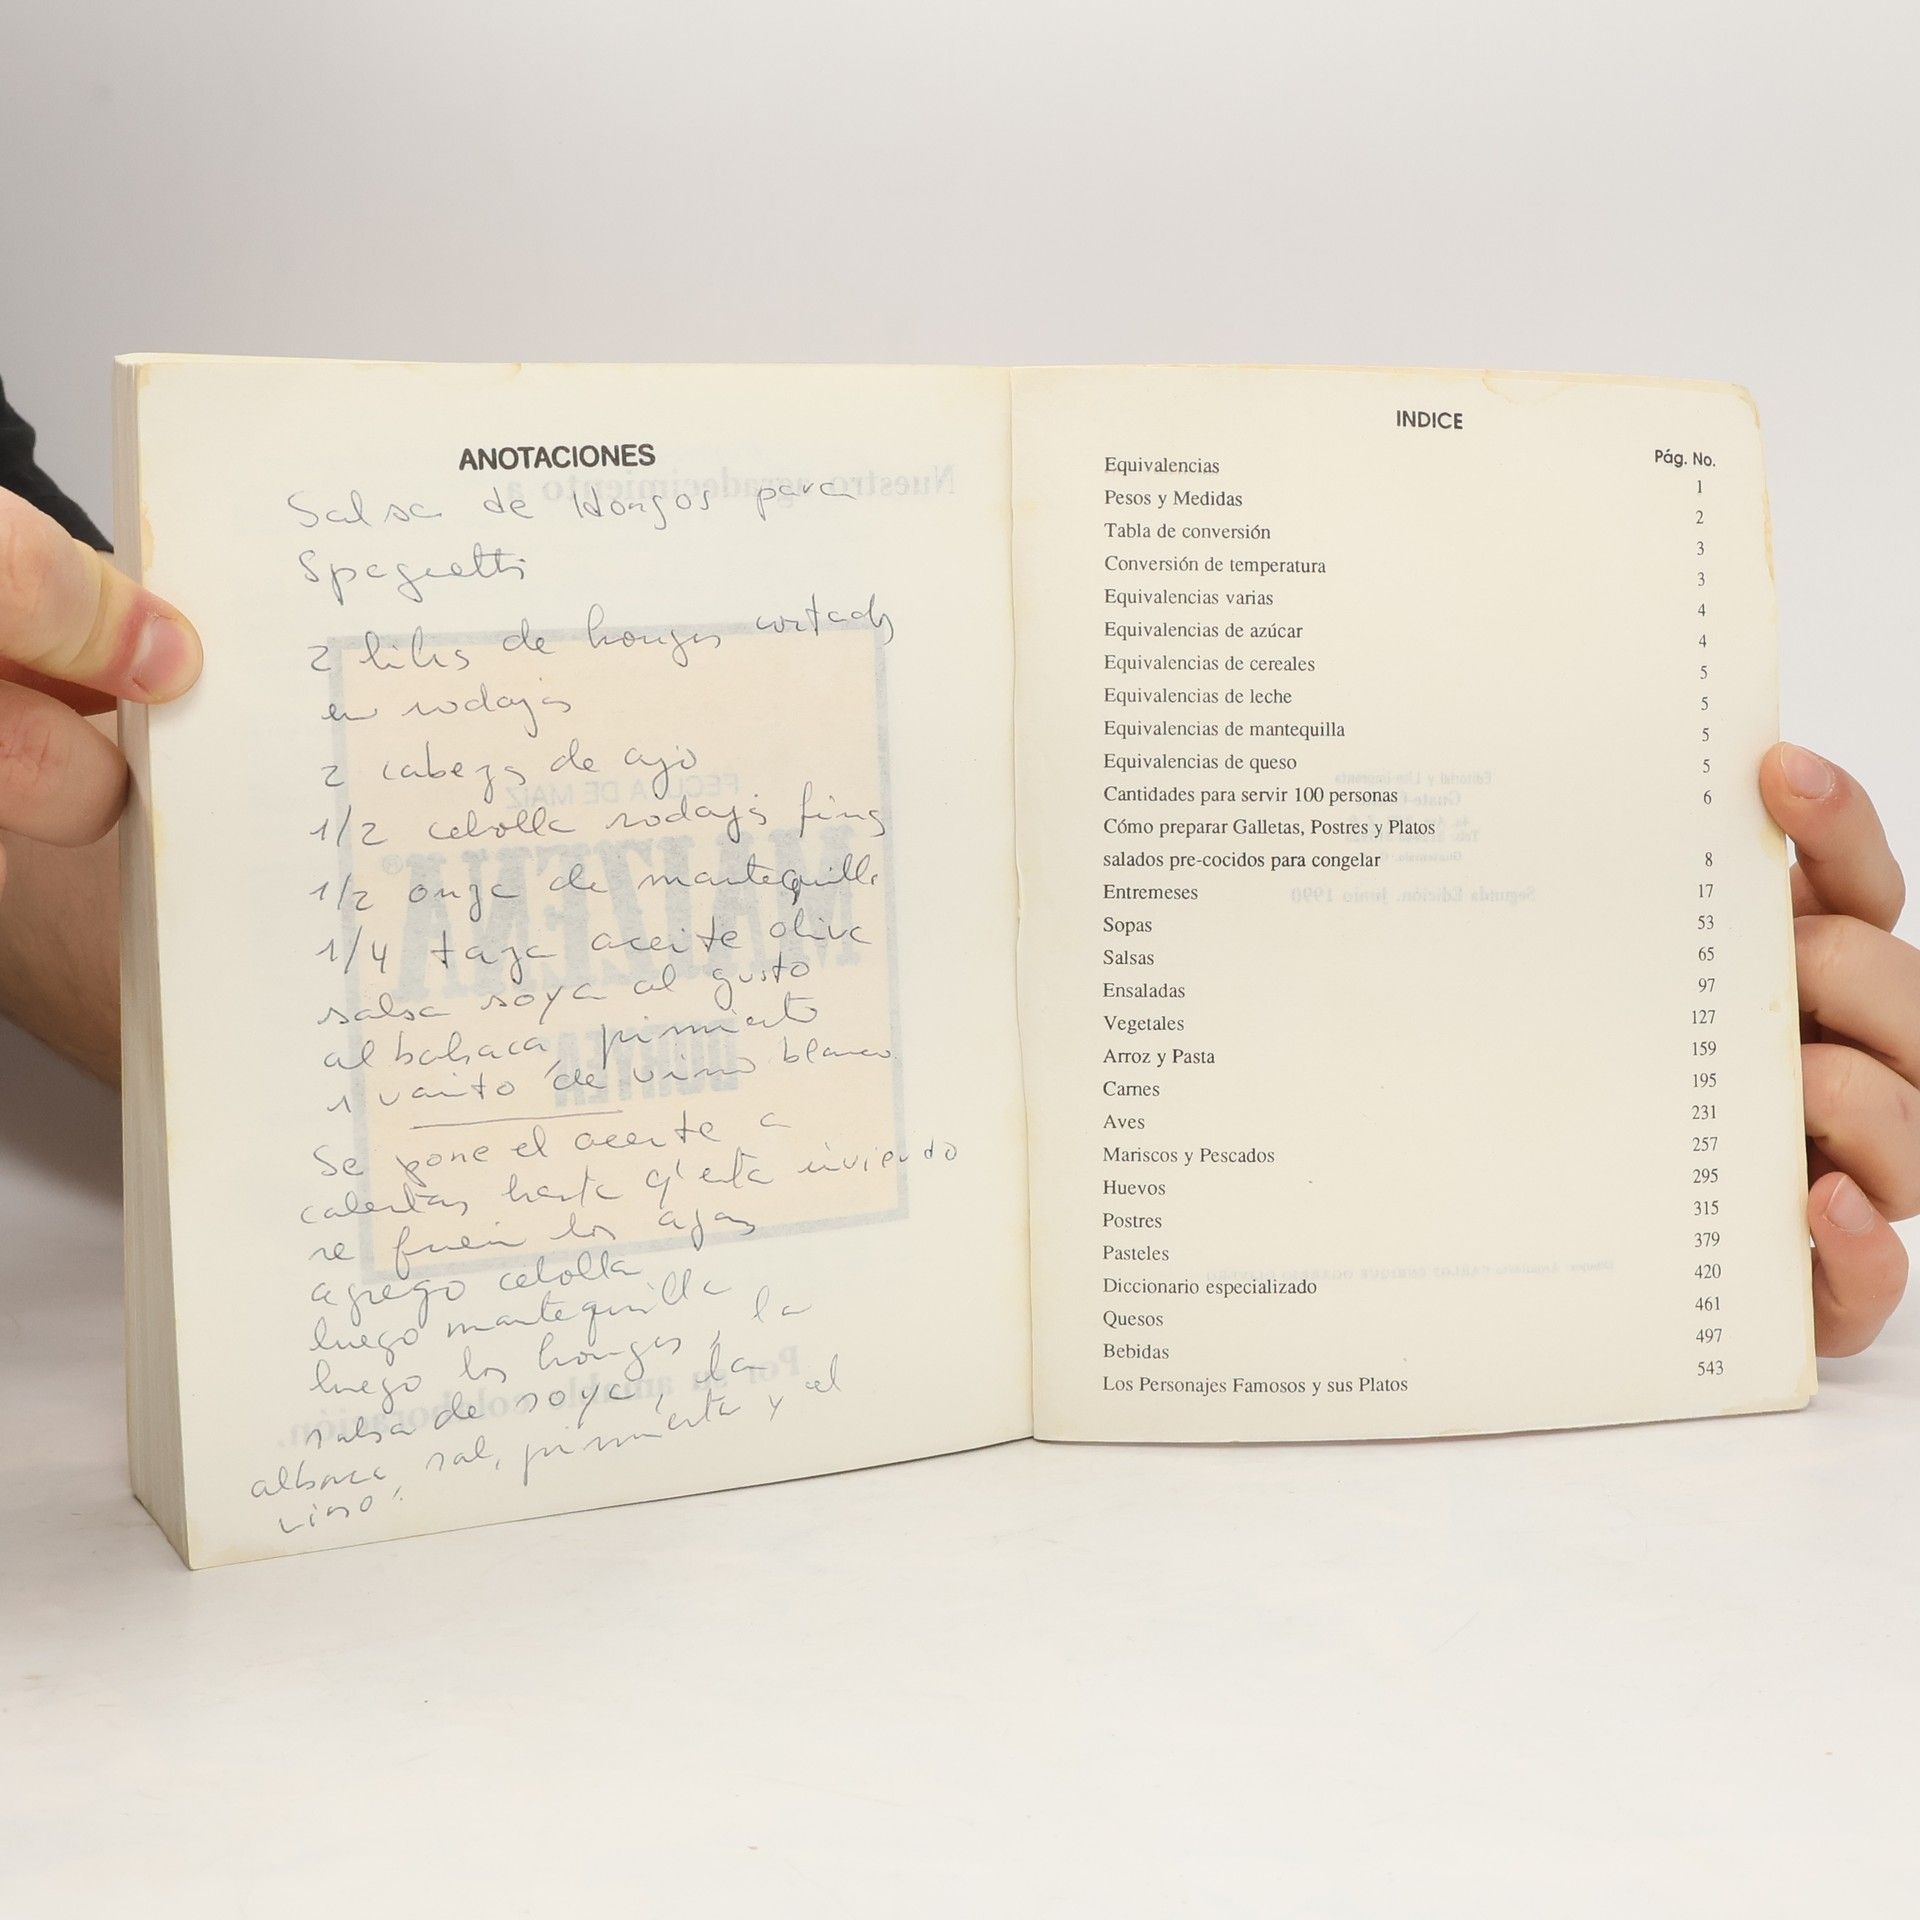 ANOTACIONES
Salsa de Hongos para
Spaguetti
2 de hongos cortados
en rodajas
2 cabezas de ajo
1/2 cebolla rodajas finas
1/2 onza de mantequilla
1/4 taza aceite oliva
salsa soya al gusto
albahaca, pimienta
1 vasito de vino blanco
Se pone el aceite a
calentar hasta q' esta irviendo
se los ajos
agrego cebolla
luego mantequilla
luego los hongos, la
salsa de soya, la
albaca, sal, pimienta y el
vino.
INDICE
Pág. No.
Equivalencias 1
Pesos y Medidas 2
Tabla de conversión 3
Conversión de temperatura 3
Equivalencias varias 4
Equivalencias de azúcar 4
Equivalencias de cereales 5
Equivalencias de leche 5
Equivalencias de mantequilla 5
Equivalencias de queso 5
Cantidades para servir 100 personas 6
Cómo preparar Galletas, Postres y Platos
salados pre-cocidos para congelar 8
Entremeses 17
Sopas 53
Salsas 65
Ensaladas 97
Vegetales 127
Arroz y Pasta 159
Carnes 195
Aves 231
Mariscos y Pescados 257
Huevos 295
Postres 315
Pasteles 379
Diccionario especializado 420
Quesos 461
Bebidas 497
Los Personajes Famosos y sus Platos 543